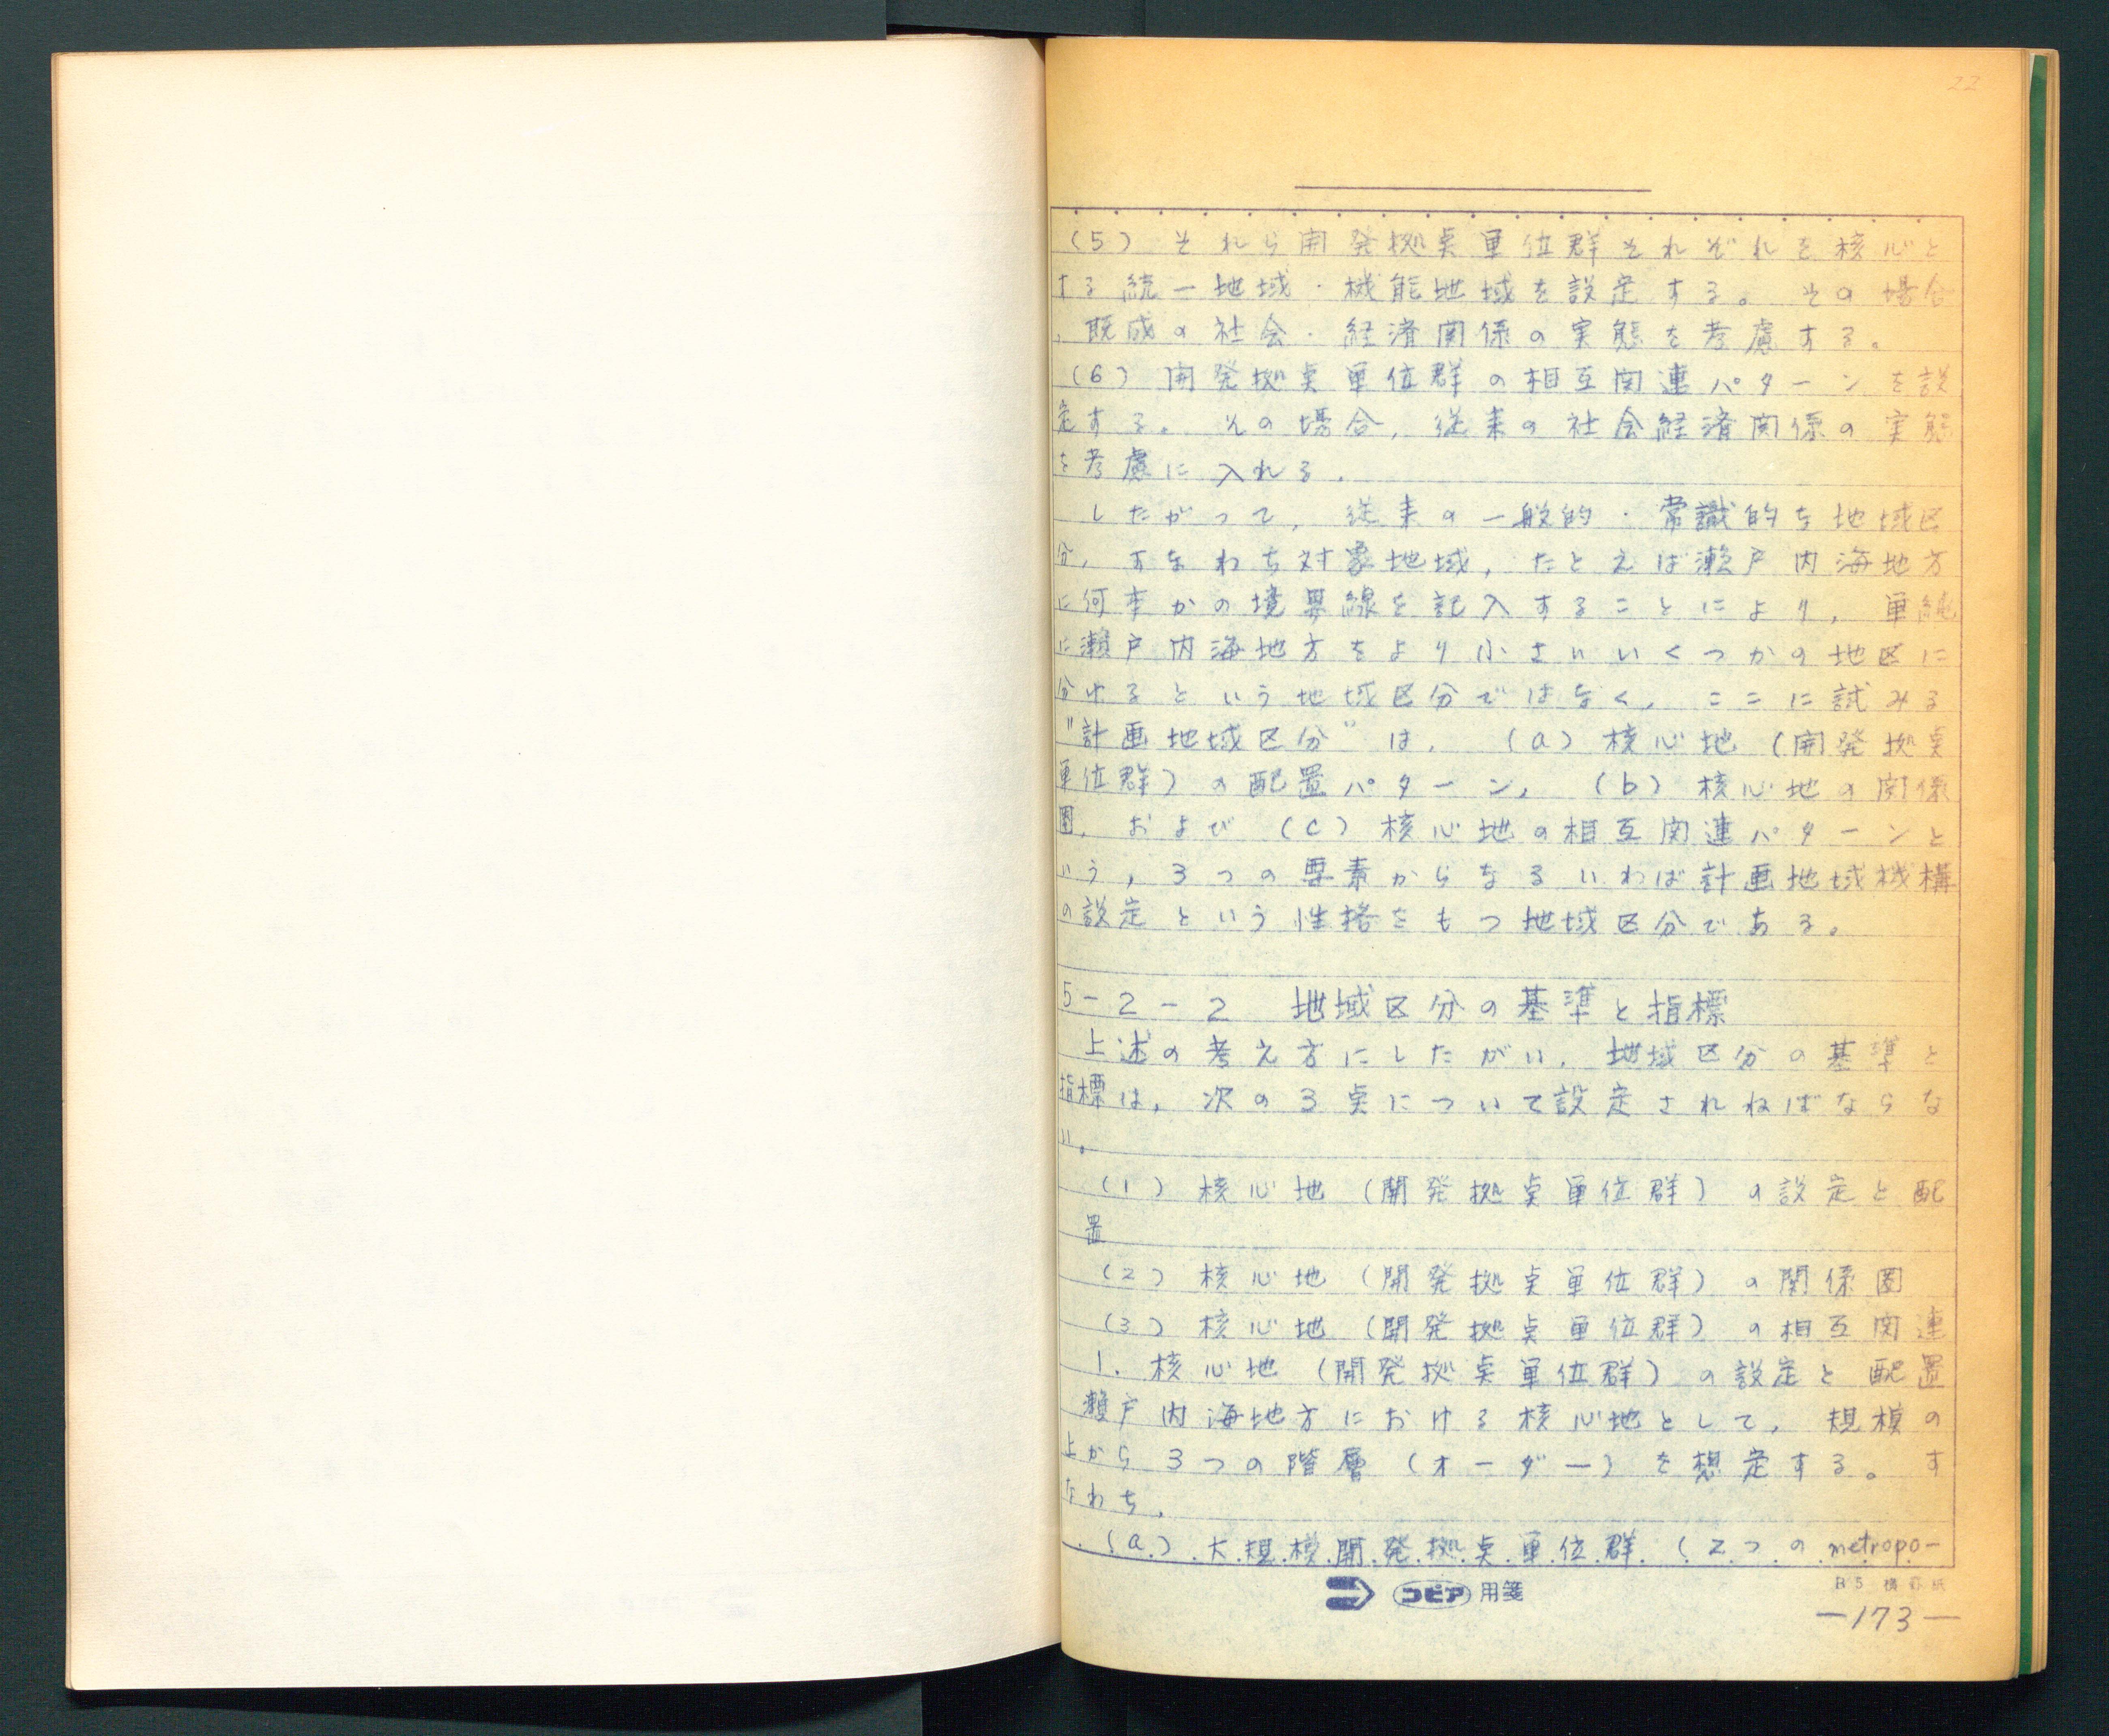 22
(5) それら開発拠点単位群それぞれを核心と
する統一地域・機能地域を設定する。その場合
、既成の社会・経済関係の実態を考慮する。
(6) 開発拠点単位群の相互関連パターンを設
定する。その場合，従来の社会経済関係の実態
を考慮に入れる。
したがって，従来の一般的・常識的な地域区
分，すなわち対象地域，たとえば瀬戸内海地方
に何本かの境界線を記入することにより，単純
に瀬戸内海地方をより小さいいくつかの地区に
分けるという地域区分ではなく，ここに試みる
"計画地域区分"は，(a) 核心地（開発拠点
単位群）の配置パターン，(b) 核心地の関係
圏，および (c) 核心地の相互関連パターンと
いう，3つの要素からなるいわば計画地域機構
の設定という性格をもつ地域区分である。
5-2-2 地域区分の基準と指標
上述の考え方にしたがい，地域区分の基準と
指標は，次の3点について設定されねばならな
い。
(1) 核心地（開発拠点単位群）の設定と配
置
(2) 核心地（開発拠点単位群）の関係圏
(3) 核心地（開発拠点単位群）の相互関連
1. 核心地（開発拠点単位群）の設定と配置
瀬戸内海地方における核心地として，規模の
上から3つの階層（オーダー）を想定する。す
なわち，
(a) 大規模開発拠点単位群（2つのmetropo-
コピア用箋
B5 横罫紙
—173—